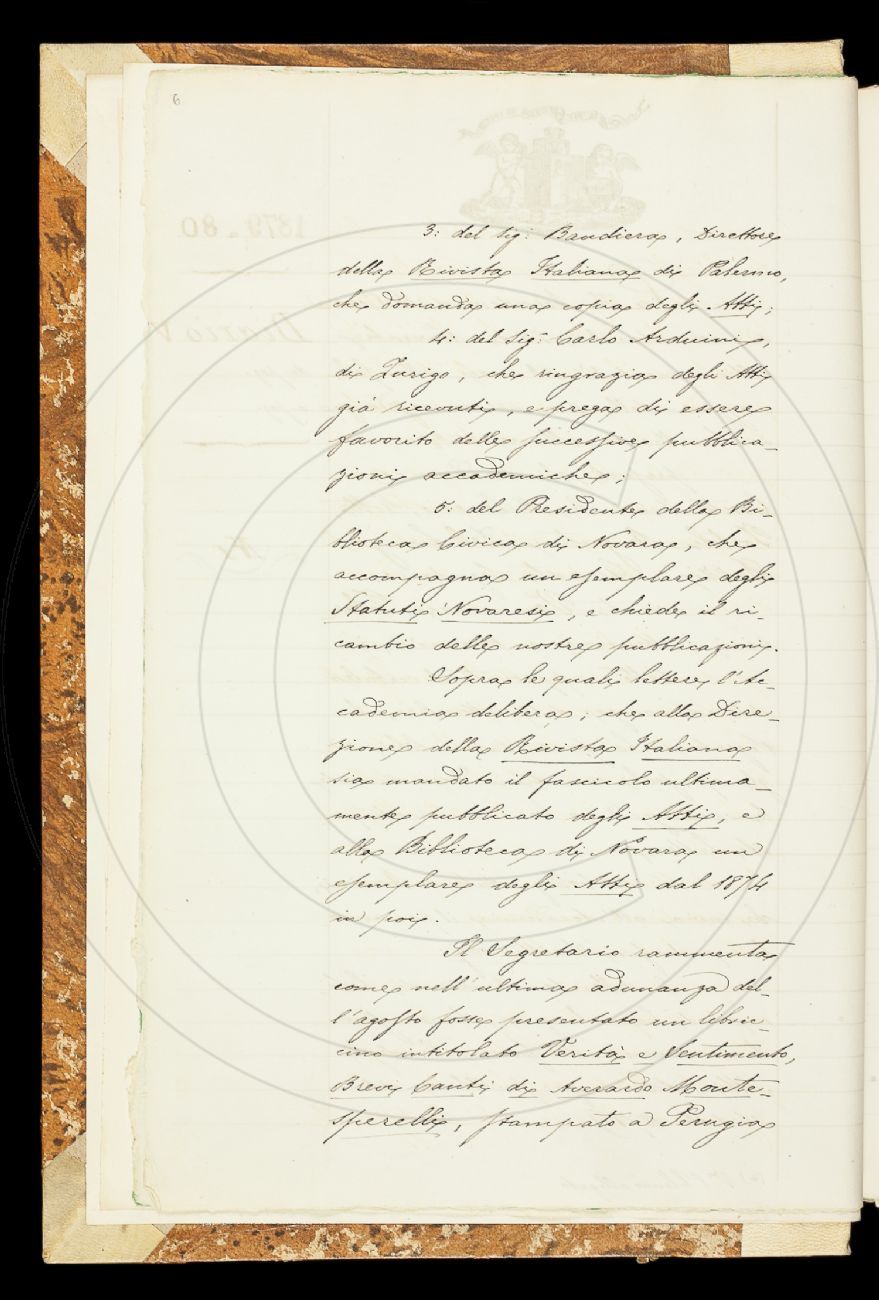 6
3: del Sig: Bandiera, Direttore
della Rivista Italiana di Palermo,
che domanda una copia degli Atti;
4: del Sig: Carlo Arduini,
di Zurigo, che ringrazia degli Atti
già ricevuti, e prega di essere
favorito delle successive pubblica-
zioni accademiche;
5: del Presidente della Bi-
blioteca Civica di Novara, che
accompagna un esemplare degli
Statuti Novaresi, e chiede il ri-
cambio delle nostre pubblicazioni.
Sopra le quali lettere l'Ac-
cademia delibera; che alla Dire-
zione della Rivista Italiana
sia mandato il fascicolo ultima-
mente pubblicato degli Atti, e
alla Biblioteca di Novara un
esemplare degli Atti dal 1874
in poi.
Il Segretario rammenta
come nell'ultima adunanza del-
l'agosto fosse presentato un libric-
cino intitolato Verità e Sentimento,
Brevi Canti di Averardo Monte-
sperelli, stampato a Perugia